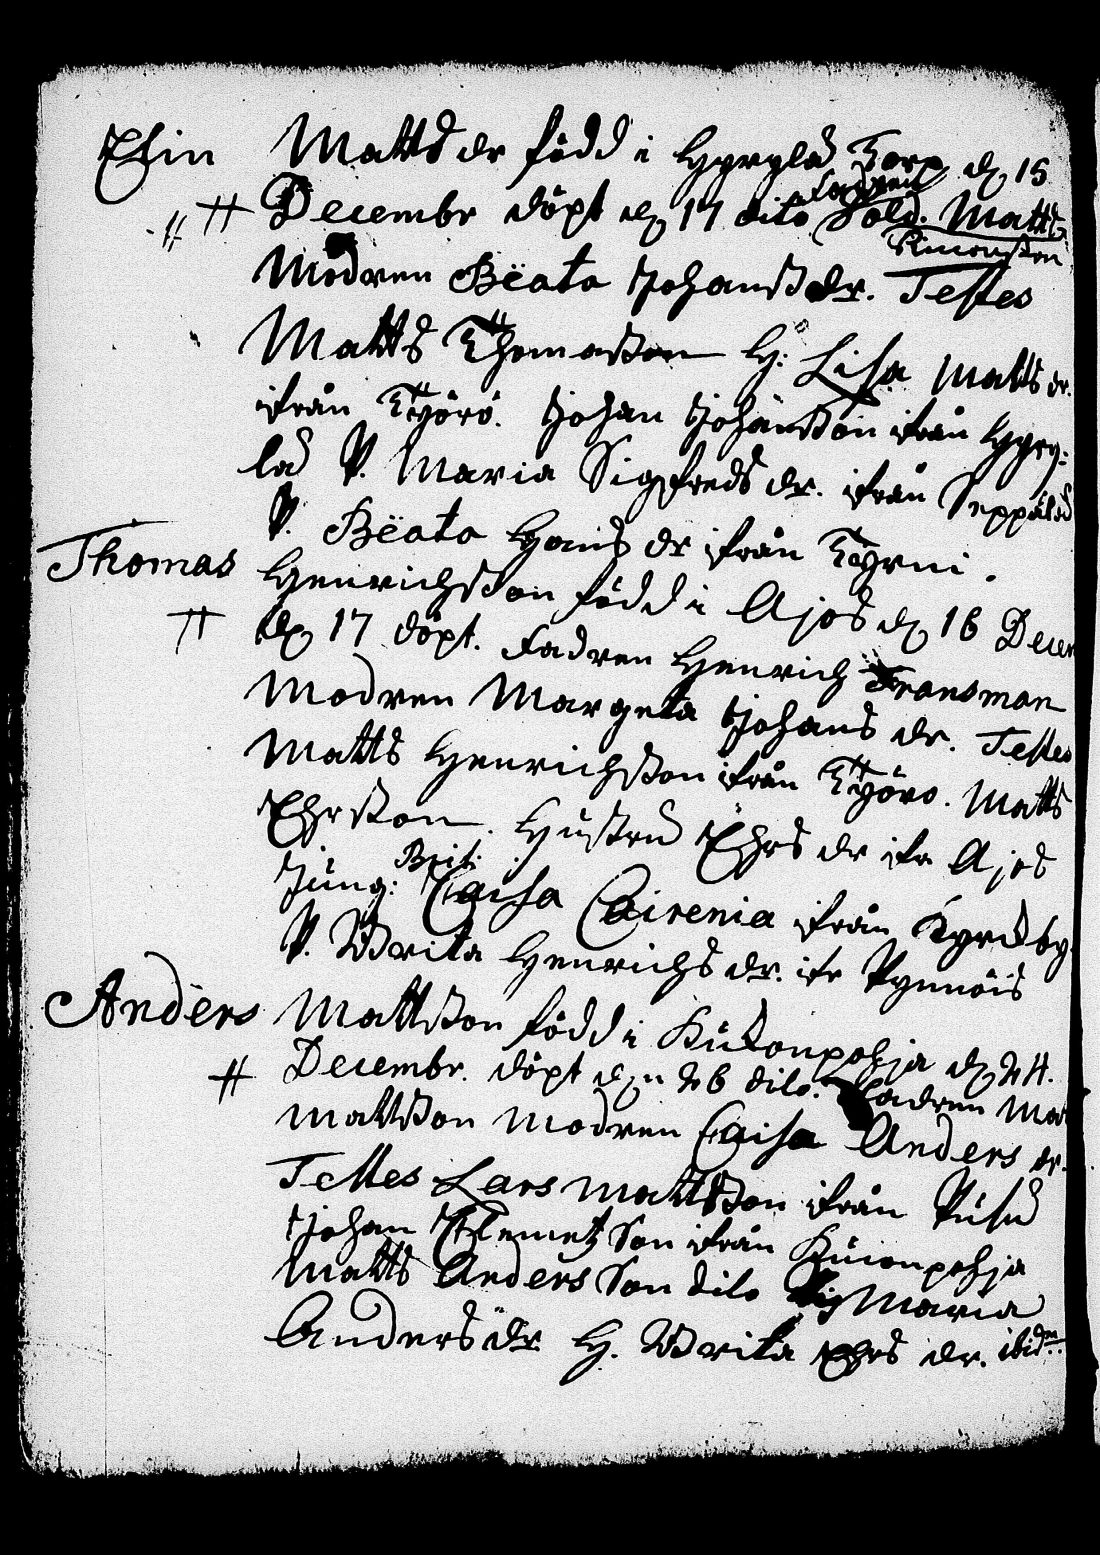 Elin Matts dr född i Hyrylä Torp d. 15
Fadren
Decembr döpt d. 17 dito Sold. Matts
Simonsson
Modren Beata Johans dr. Testes
Matts Thomasson H: Lisa Matts dr.
ifrån Työrö. Johan Johansson ifrån Hyry:
lä P. Maria Sigfreds dr. ifrån Seppälä
P. Beata Hans dr ifrån Tyrni.
Thomas Henrichsson född i Ajos d. 16 Decem
d. 17 döpt. Fadren Henrich Fransman
Modren Margeta Johans dr. Testes
Matts Henrichsson ifrån Työrö. Matts
Ehrsson. Hustru Ehrs dr ifr Ajos
Brit:
Jung: Caisa Cairenia ifrån Kyrckby
P. Brita Henrichs dr. ifr Pynnöis
Anders Mattsson född i Kuconpohja d. 24.
Decembr. döpt d. 26 dito. Fadren Mat
Mattsson Modren Caisa Anders dr.
Testes Lars Mattsson ifrån Pusu
Johan Klemetz Son ifrån Kuconpohja
Matts Anders Son dito Pig Maria
Anders dr H. Brita Ehrs dr. ibid:m